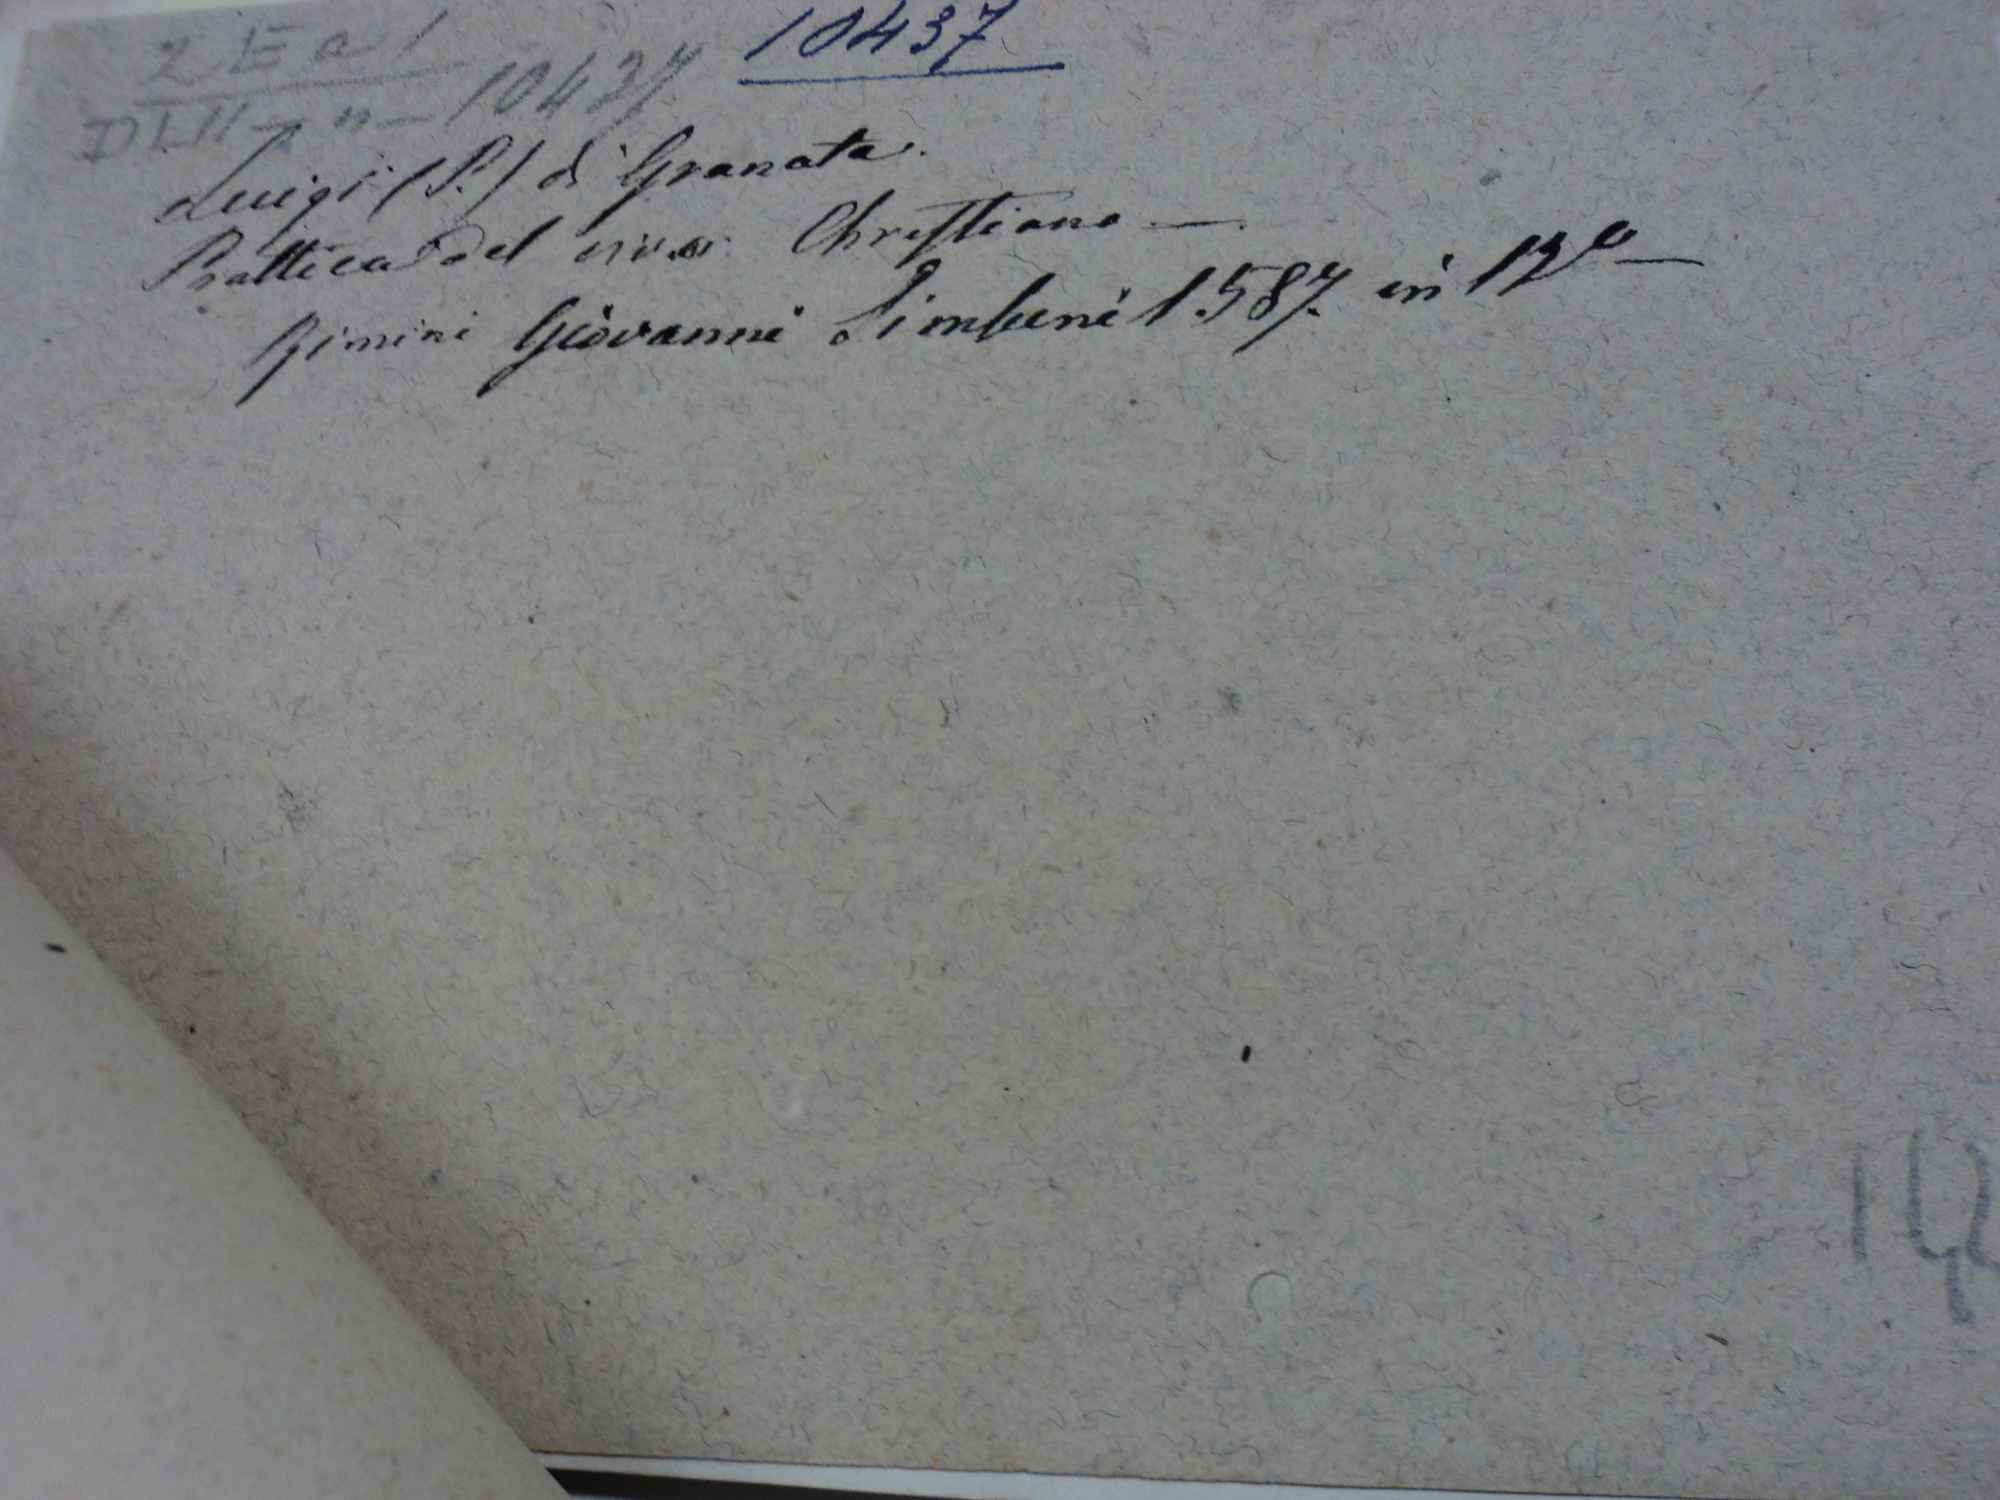 2 E a 1
10437
10437
Luigi (P.) di Granata.
Prattica del Christiano —
Rimini Giovanni Simbeni 1587. in 12º —